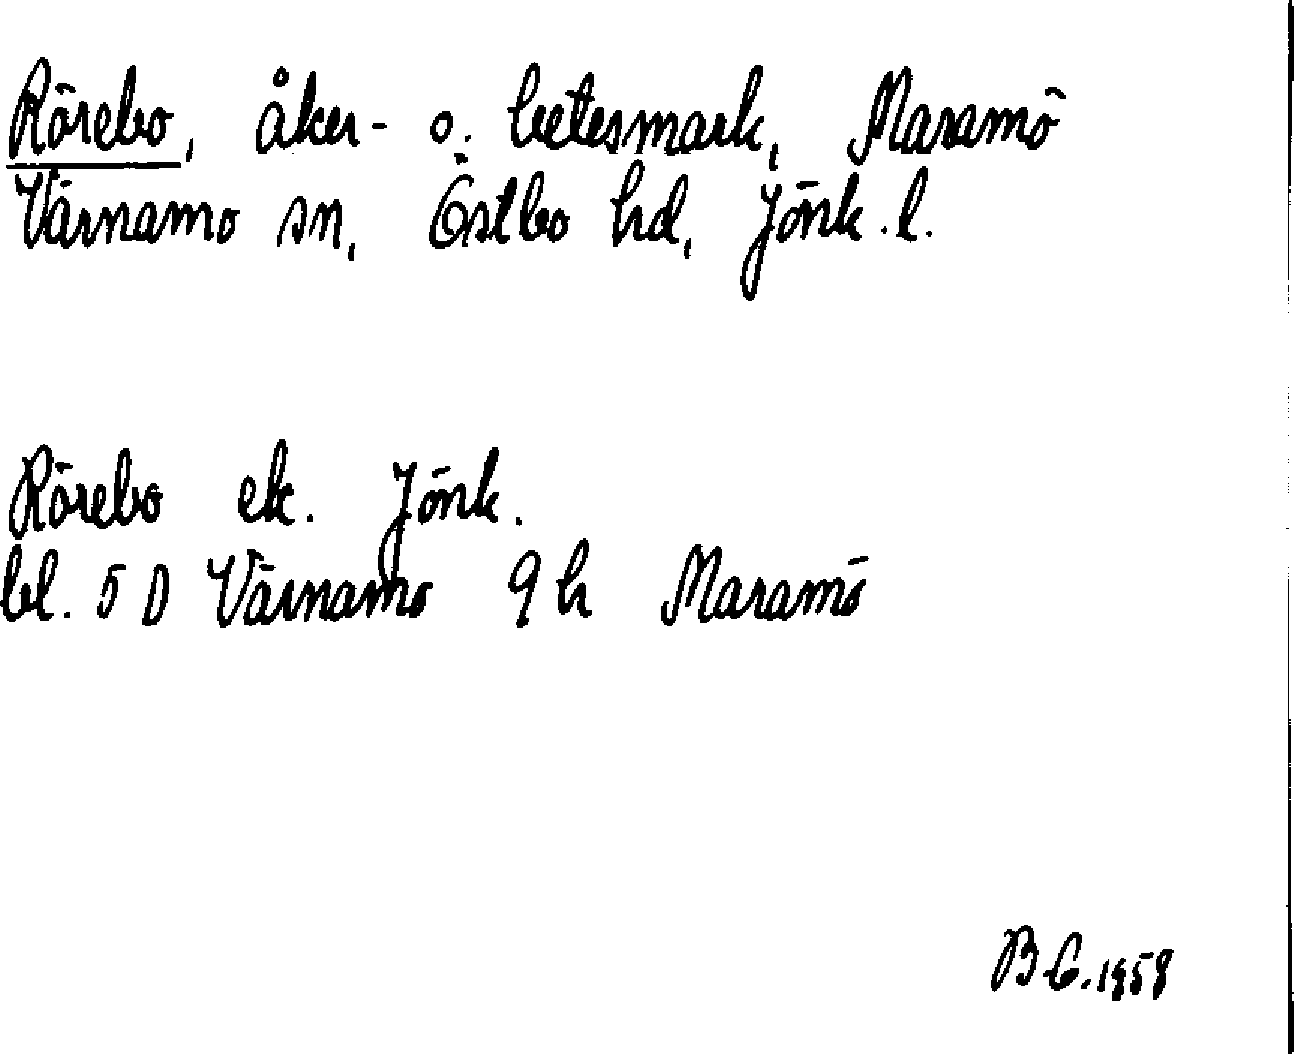 Rörebo, åker- o. betesmark, Maramö
Värnamo sn, Östbo hd, Jönk. l.
Rörebo ek. Jönk.
bl. 5 D Värnamo 9 h Maramö
B G. 1958